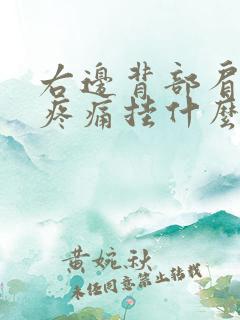 右邊背部肩
疼痛挂什麼
黄婉秋
未经同意禁止转载